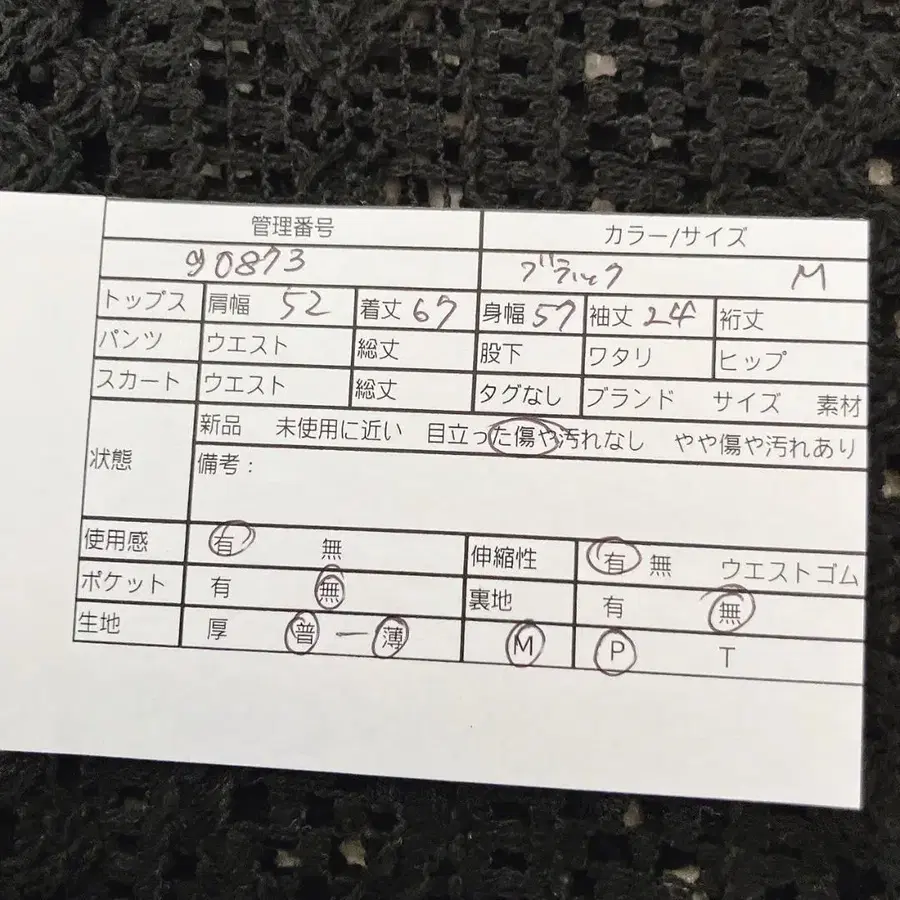 管理番号 カラー/サイズ
90873 ブラック M
トップス 肩幅 52 着丈 67 身幅 57 袖丈 24 裄丈
パンツ ウエスト 総丈 股下 ワタリ ヒップ
スカート ウエスト 総丈 タグなし ブランド サイズ 素材
状態 新品 未使用に近い 目立った傷や汚れなし やや傷や汚れあり
備考:
使用感 有 無 伸縮性 有 無 ウエストゴム
ポケット 有 無 裏地 有 無
生地 厚 普 ー 薄 M P T